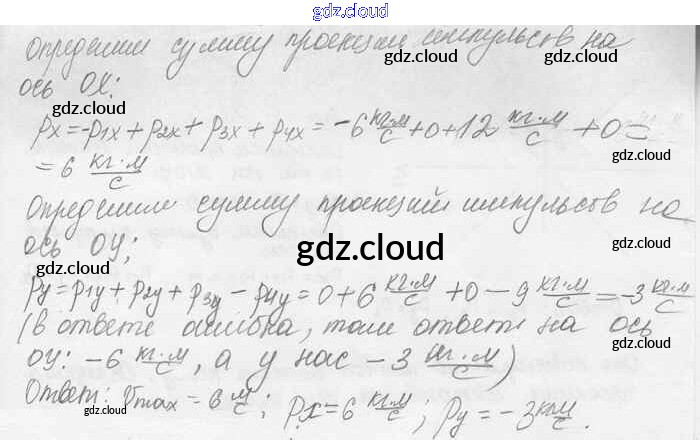 gdz.cloud
Определим сумму проекций импульсов на
ось OX:
gdz.cloud
gdz.cloud
Px = -P1x + P2x + P3x + P4x = -6 кг·м/с + 0 + 12 кг·м/с + 0 =
gdz.cloud
= 6 кг·м/с
gdz.cloud
Определим сумму проекций импульсов на
ось OY;
gdz.cloud
gdz.cloud
Py = P1y + P2y + P3y - P4y = 0 + 6 кг·м/с + 0 - 9 кг·м/с = -3 кг·м/с
(в ответе ошибка, там ответ на ось
gdz.cloud
OY: -6 кг·м/с а у нас -3 кг·м/с)
gdz.cloud
Ответ: υmax = 6 м/с; Px = 6 кг·м/с; Py = -3 кг·м/с.
gdz.cloud
gdz.cloud